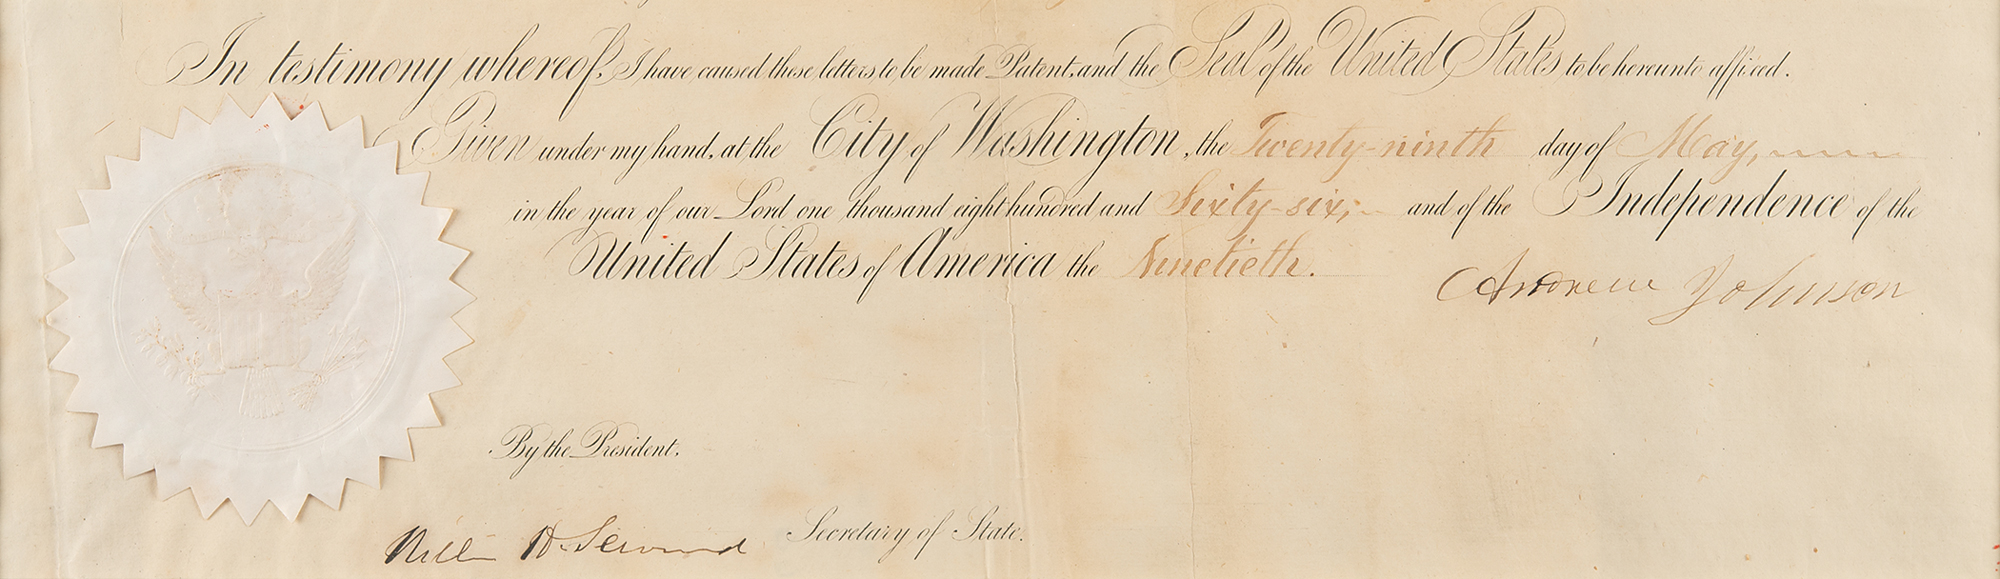 In testimony whereof, I have caused these letters to be made Patent, and the Seal of the United States to be hereunto affixed.
Given under my hand, at the City of Washington, the Twenty-ninth day of May,
in the year of our Lord one thousand eight hundred and Sixty-six; and of the Independence of the
United States of America the Ninetieth.
Andrew Johnson
By the President.
William H. Seward Secretary of State.